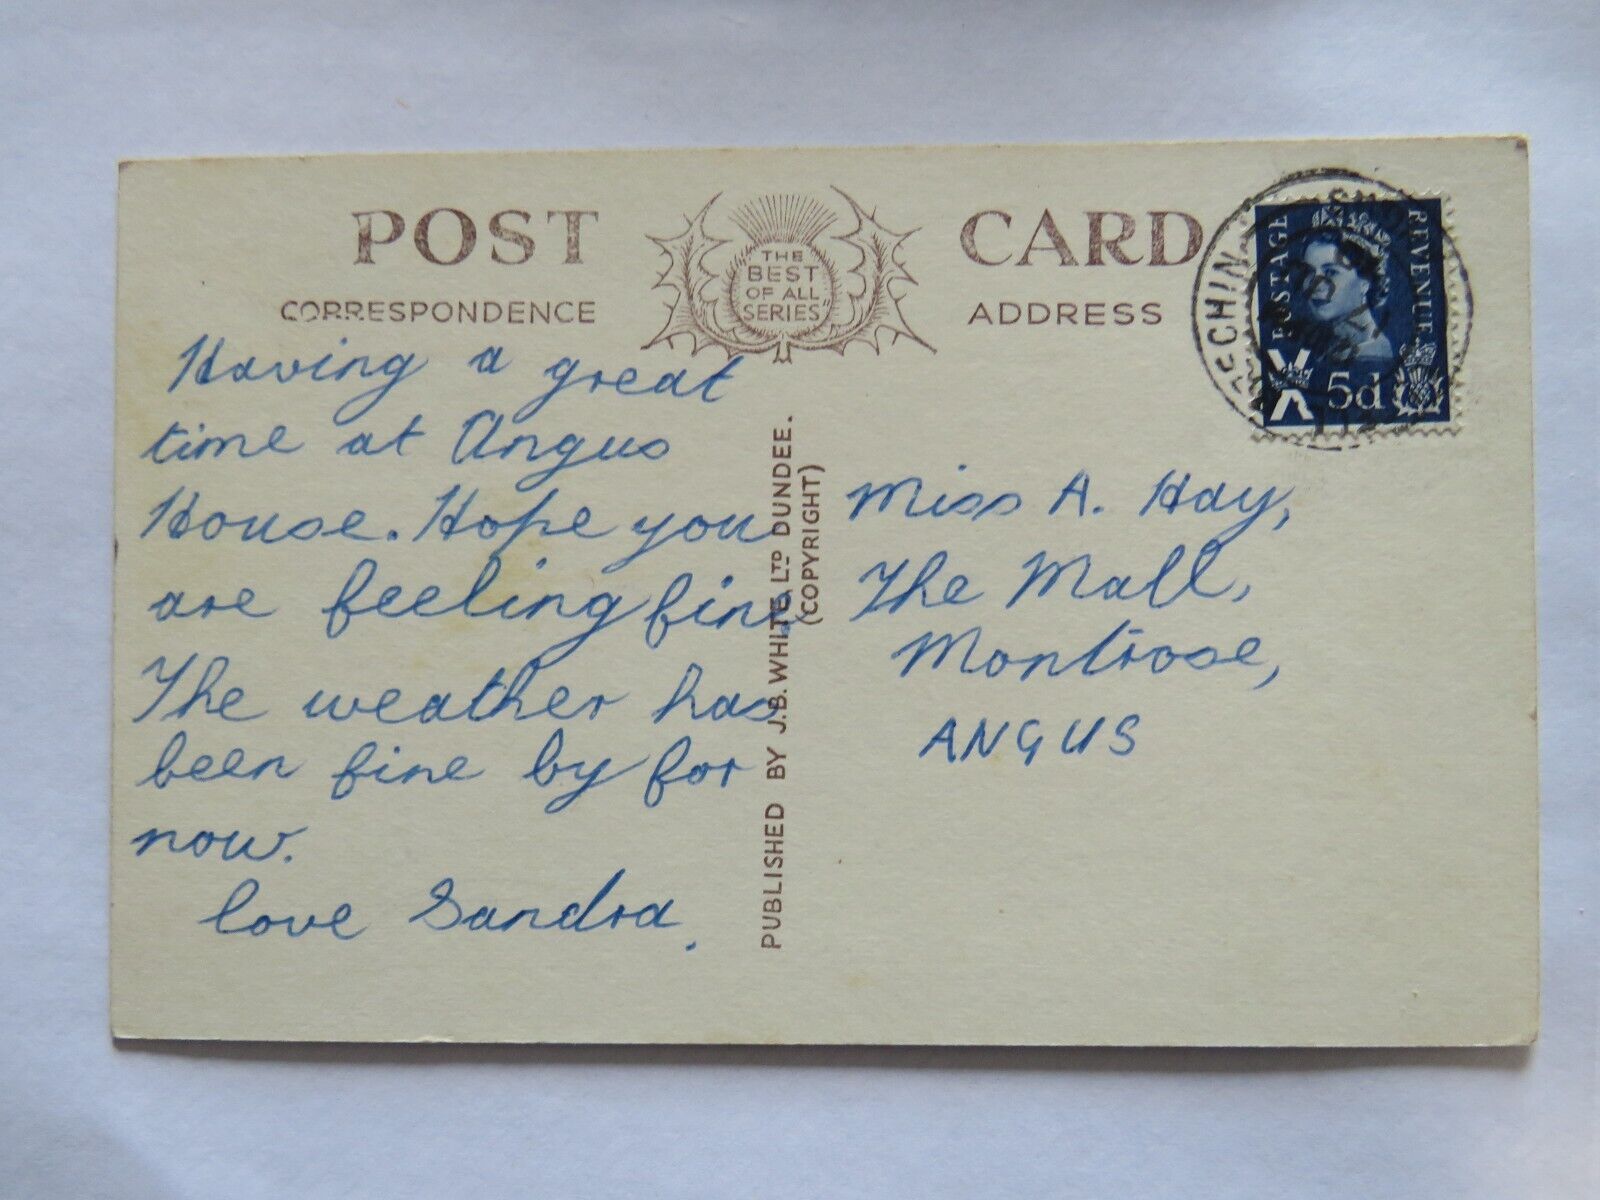 POST CARD
CORRESPONDENCE
"THE
BEST
OF ALL
SERIES"
ADDRESS
POSTAGE
REVENUE
5d
Having a great
time at Angus
House. Hope you
are feeling fine
The weather has
been fine by for
now.
love Sandra.
PUBLISHED BY J.B. WHITE LTD DUNDEE.
(COPYRIGHT)
Miss A. Hay,
The Mall,
Montrose,
ANGUS